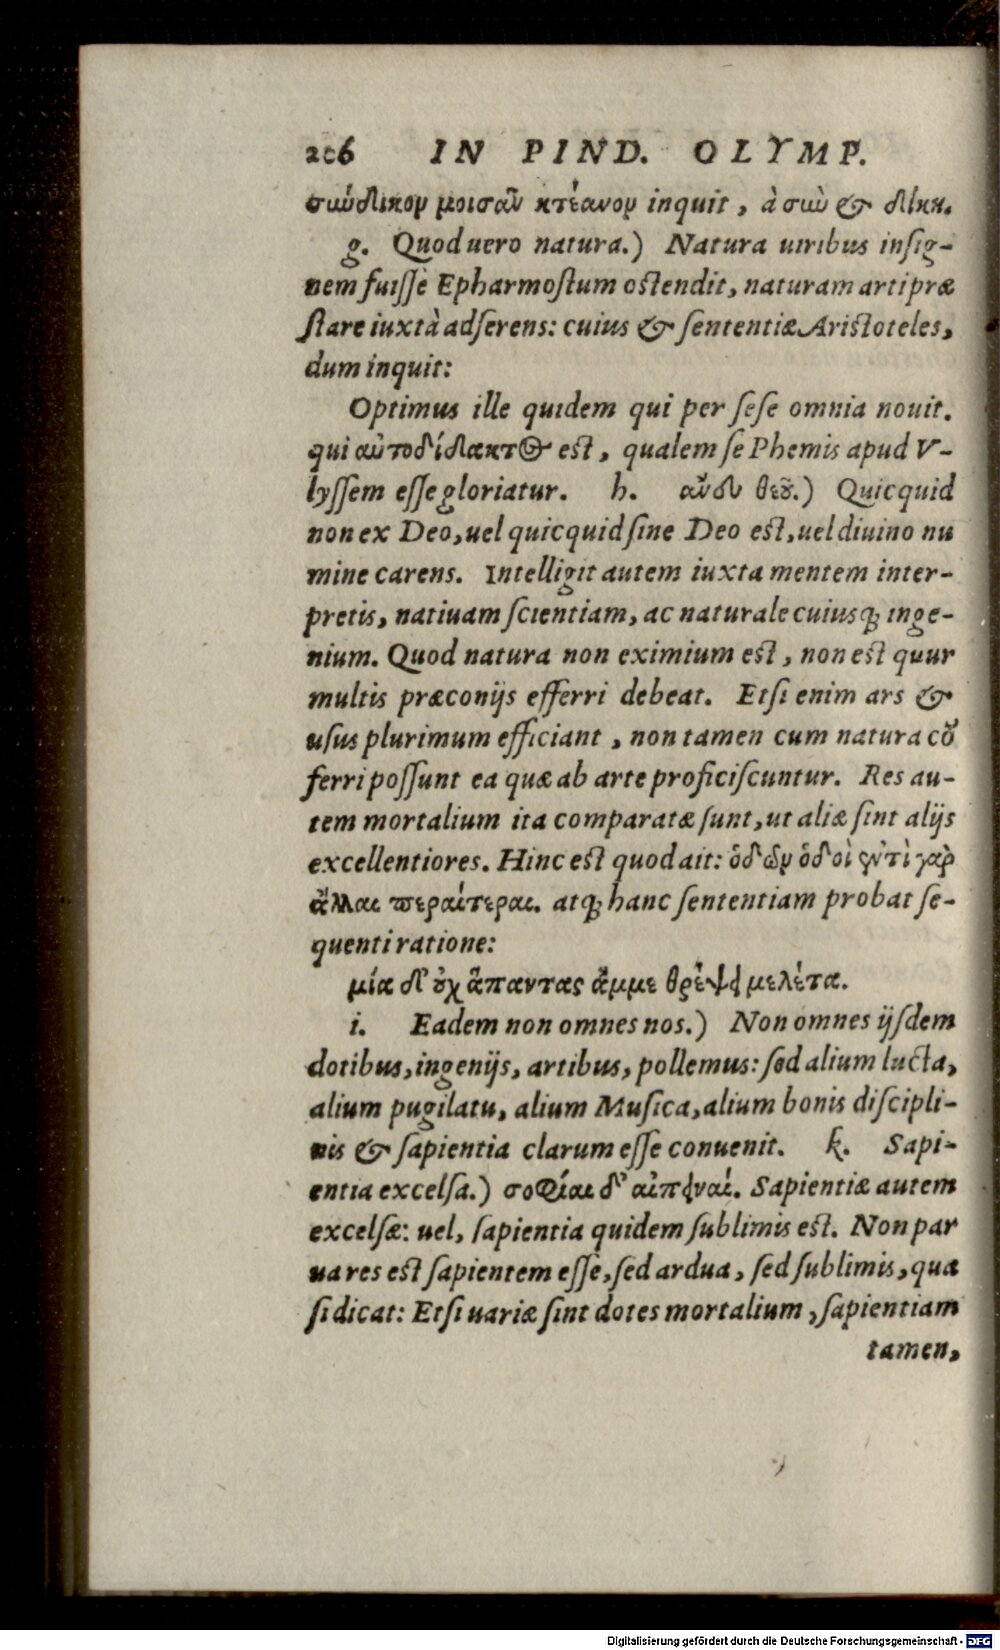 206 IN PIND. OLYMP.
σύνδικον μοισᾶν κτέανον inquit, à σὺν & δίκη.
g. Quod uero natura.) Natura uiribus insig-
nem fuisse Epharmostum ostendit, naturam arti præ
stare iuxtà adserens: cuius & sententiæ Aristoteles,
dum inquit:
Optimus ille quidem qui per sese omnia nouit.
qui αὐτοδίδακτος est, qualem se Phemis apud V-
lyssem esse gloriatur. h. ἄνδυ θεȣ̃.) Quicquid
non ex Deo, uel quicquid sine Deo est, uel diuino nu
mine carens. Intelligit autem iuxta mentem inter-
pretis, natiuam scientiam, ac naturale cuiusq; inge-
nium. Quod natura non eximium est, non est quur
multis præconijs efferri debeat. Etsi enim ars &
usus plurimum efficiant, non tamen cum natura cõ
ferri possunt ea quæ ab arte proficiscuntur. Res au-
tem mortalium ita comparatæ sunt, ut aliæ sint alijs
excellentiores. Hinc est quod ait: ὁδῶν ὁδοὶ ἐντὶ γὰρ
ἄλλαι περαίτεραι. atq; hanc sententiam probat se-
quenti ratione:
μία δ' ȣ̓χ ἅπαντας ἄμμε θρέψει μελέτα.
i. Eadem non omnes nos.) Non omnes ijsdem
dotibus, ingenijs, artibus, pollemus: sed alium lucta,
alium pugilatu, alium Musica, alium bonis discipli-
nis & sapientia clarum esse conuenit. k. Sapi-
entia excelsa.) σοφίαι δ' αἰπειναί. Sapientiæ autem
excelsæ: uel, sapientia quidem sublimis est. Non par
ua res est sapientem esse, sed ardua, sed sublimis, qua
si dicat: Etsi uariæ sint dotes mortalium, sapientiam
tamen,
Digitalisierung gefördert durch die Deutsche Forschungsgemeinschaft - DFG